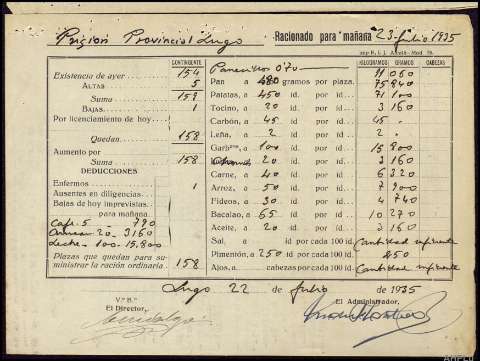 Prision Provincial Lugo Racionado para mañana 23-Julio 1935
CONTINGENTE KILOGRAMOS GRAMOS CABEZAS
Existencia de ayer 154 Panecillos 070 11 060
ALTAS 5 Pan a 480 gramos por plaza. 75 840
Suma 159 Patatas, a 450 id. por id. 71 100
BAJAS 1 Tocino, a 20 id. id. 3 160
Por licenciamiento de hoy Carbón, a 45 id. id. 45
Quedan 158 Leña, a 2 id. id. 2
Aumento por Garbzos, a 100 id. id. 15 800
Suma 158 20 id. id. 3 160
DEDUCCIONES Carne, a 40 id. id. 6 320
Enfermos 1 Arroz, a 50 id. id. 7 900
Ausentes en diligencias Fideos, a 30 id. id. 4 740
Bajas de hoy imprevistas Bacalao, a 65 id. id. 10 270
para mañana Aceite, a 20 id. id. 3 160
Cafe. 5 - 790
Sal, a id por cada 100 id. Cantidad suficiente
Azucar 20 - 3160
Leche - 100 - 15,800 Pimentón, a 250 id por cada 100 id. 250
Plazas que quedan para suministrar la ración ordinaria 158 Ajos, a cabezas por cada 100 id. Cantidad suficiente
Lugo 22 de Julio de 1935
V.º B.º
El Director, El Administrador,